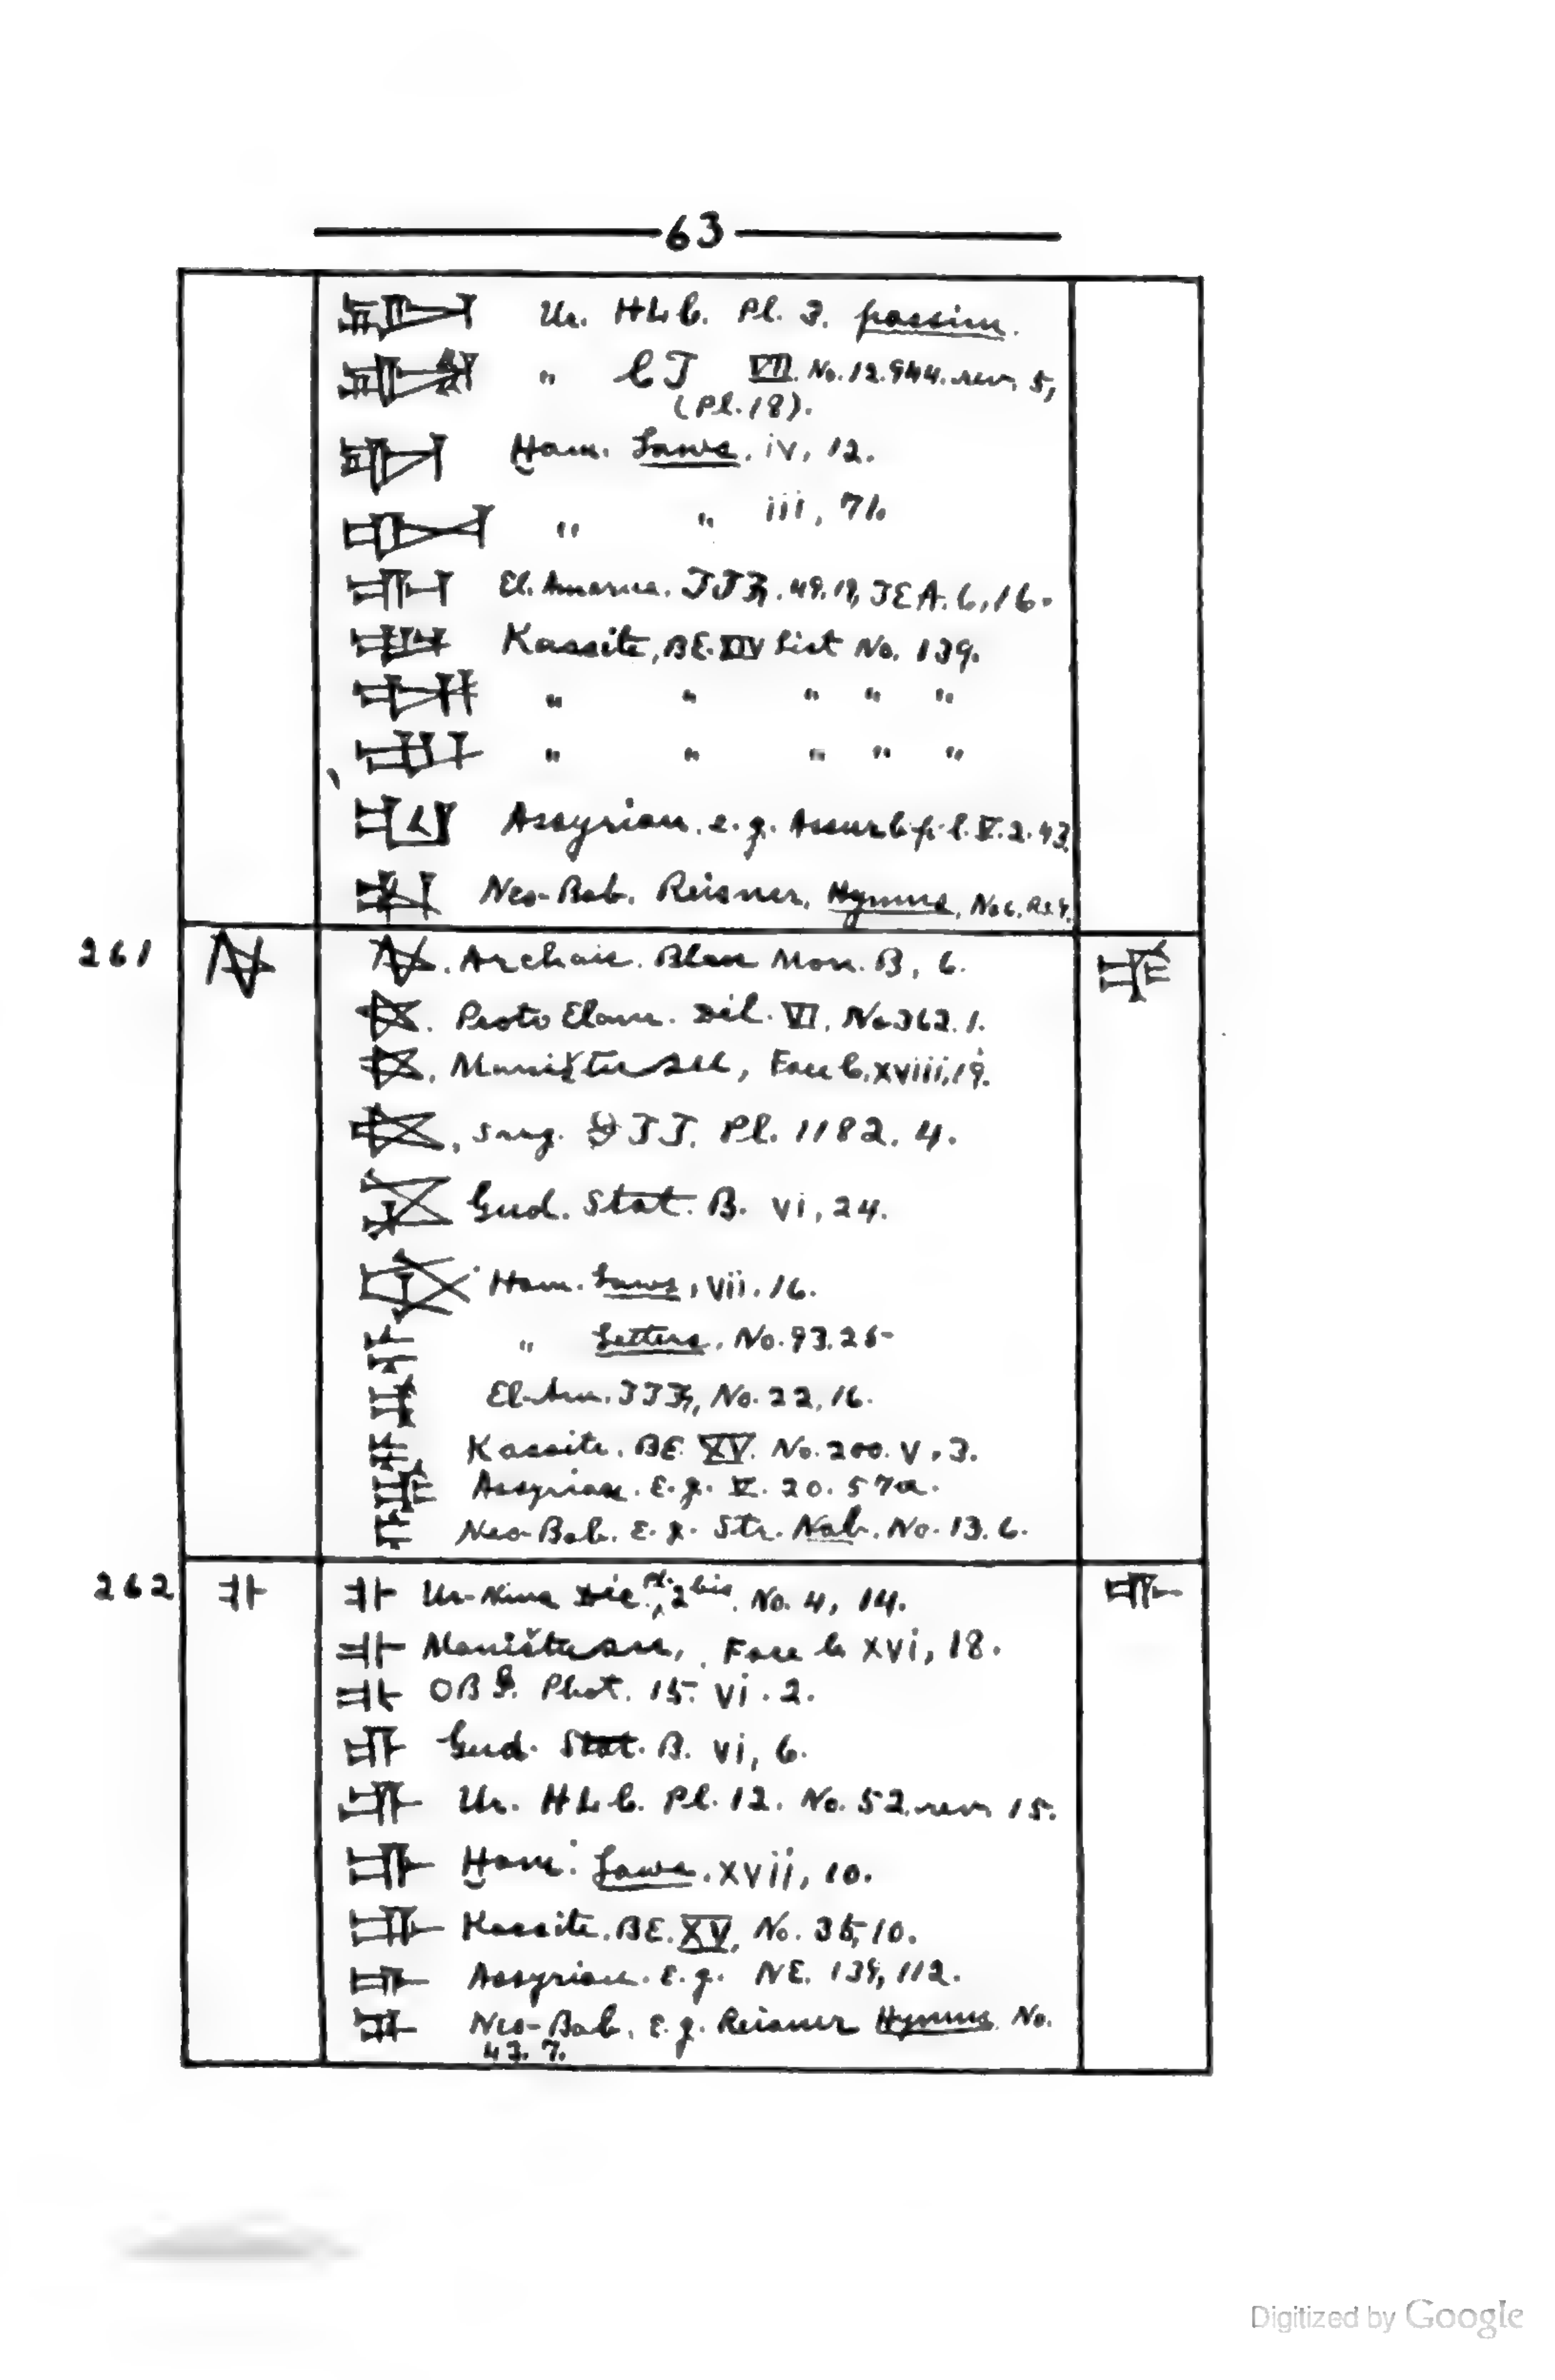 63
Ur. HLC. Pl. 3. passim.
„ CT VII. No. 12.944. rev. 5,
(Pl. 18).
Ḫam. Laws. iv, 12.
„ „ iii, 71.
El. Amarna. 49.19, JEA. 6, 16.
Kassite, BE. XIV List No. 139.
„ „ „ „ „
„ „ „ „ „
Assyrian, e.g. V. 2. 43.
Neo-Bab. Reisner, Hymns,
261 Archaic. Blau Mon. B, 6.
Proto Elam. Dél. VI, No 362. 1.
Maništusu, Face C, xviii, 19.
Sarg. TT. Pl. 1182. 4.
Gud. Stat. B. vi, 24.
Ham. Laws, vii. 16.
„ Letters, No. 93. 25
El-Am. No. 22, 16.
Kassite. BE. XV. No. 200. V, 3.
Assyrian. E.g. V. 20. 57a.
Neo-Bab. E.g. Str. Nab. No. 13. 6.
262 Ur-Nina Déc. pl. 2bis. No. 4, 14.
Maništusu, Face C xvi, 18.
OBI. Phot. 15. vi. 2.
Gud. Stat. B. vi, 6.
Ur. HLC. Pl. 12. No. 52. rev. 15.
Ḫam. Laws. xvii, 10.
Kassite. BE. XV, No. 35, 10.
Assyrian. E.g. NE. 139, 112.
Neo-Bab. E.g. Reisner Hymns No.
43. 7.
Digitized by Google